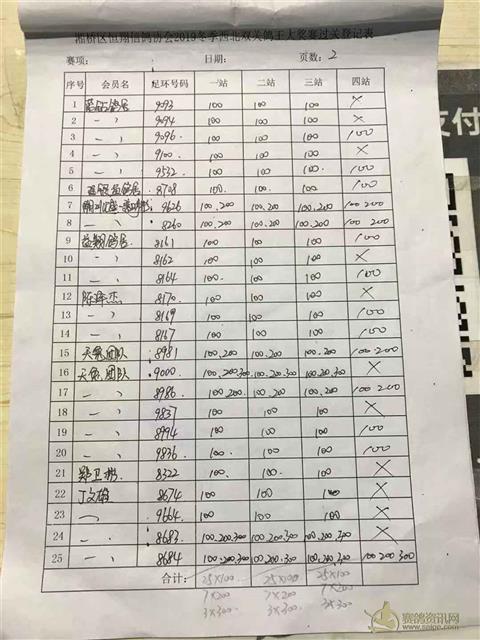 湘桥区恒翔信鸽协会2019年季西北双关鸽王大奖赛过关登记表
赛项： 日期： 页数：2
序号 会员名 足环号码 一站 二站 三站 四站
1 9093 100 100 100 ×
2 一 、 9094 100 100 100 ×
3 一 、 9096 100 100 100 100
4 一 、 9100 100 100 100 ×
5 一 、 9532 100 100 100 100
6 8708 100 100 100 100
7 9626 100.200 100.200 100.200 100 200
8 一 、 8260 100.200 100.200 100.200 100 200
9 益翔鸽舍 8161 100 100 100 100
10 一 、 8162 100 100 100 ×
11 一 、 8164 100 100 100 100
12 陈泽杰 8170 100 100 100 ×
13 一 、 8169 100 100 100 100
14 一 、 8167 100 100 100 100
15 天龍团队 8981 100.200 100.200 100.200 100.200
16 天龍团队 9000 100.200.300 100.200.300 100.200.300 ×
17 一 、 8986 100.200 100.200 100.200 100 200
18 一 、 9837 100 100 100 ×
19 一 、 8994 100 100 100 100
20 一 、 9836 100 100 100 100
21 郑卫彬 8322 100 100 100 ×
22 丁文雄 8674 100 100 100 ×
23 一 、 9664 100 100 100 ×
24 一 、 8683 100.200.300 100.200.300 100.200.300 ×
25 一 、 8684 100.200.300 100.200.300 100.200.300 100 200 300
合计： 25×100 25×100 25×100
7×200 7×200 7×200
3×300 3×300 3×300
支付
赛鸽资讯网
www.saige.com